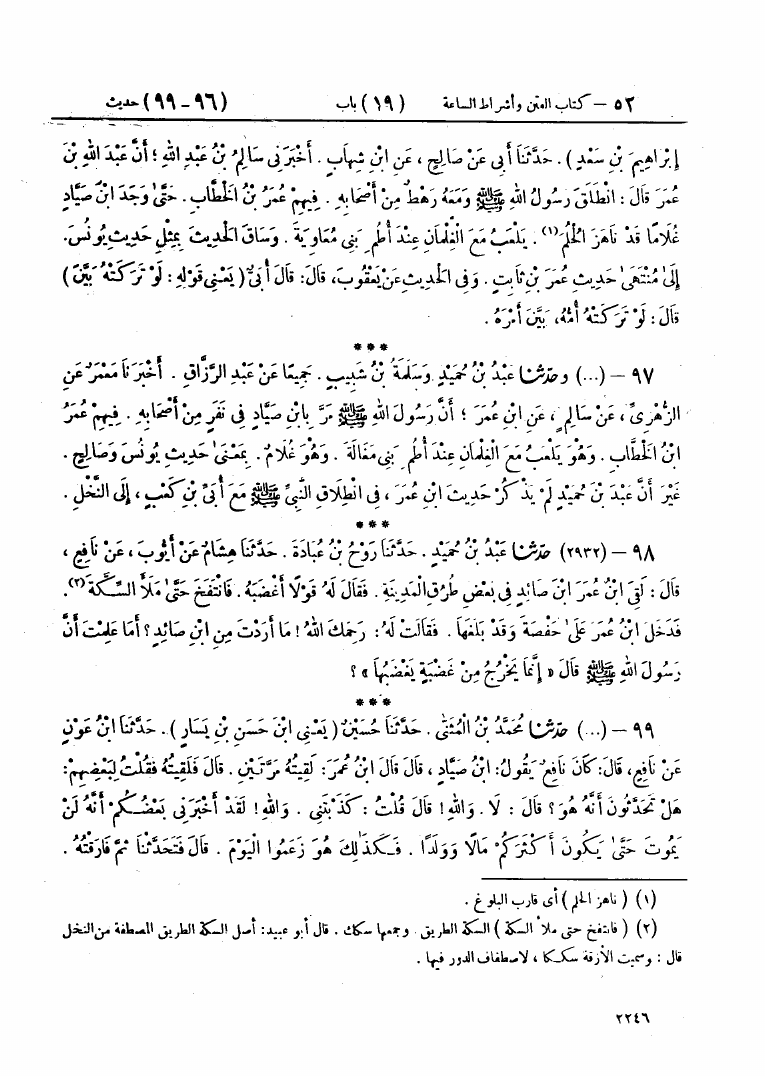 ٥٢ – كتاب الفتن وأشراط الساعة (١٩) باب (٩٦-٩٩) حديث
إِبْرَاهِيمَ بْنِ سَعْدٍ). حَدَّثَنَا أَبِى عَنْ صَالِحٍ، عَنِ ابْنِ شِهَابٍ. أَخْبَرَنِى سَالِمُ بْنُ عَبْدِ اللهِ؛ أَنَّ عَبْدَ اللهِ بْنَ
عُمَرَ قَالَ: انْطَلَقَ رَسُولُ اللهِ ﷺ وَمَعَهُ رَهْطٌ مِنْ أَصْحَابِهِ. فِيهِمْ عُمَرُ بْنُ الْخَطَّابِ. حَتَّىٰ وَجَدَ ابْنَ صَيَّادٍ
غُلَامًا قَدْ نَاهَزَ الْحُلُمَ(١). يَلْعَبُ مَعَ الْغِلْمَانِ عِنْدَ أُطُمِ بَنِى مُعَاوِيَةَ. وَسَاقَ الْحَدِيثَ بِمِثْلِ حَدِيثِ يُونُسَ.
إِلَىٰ مُنْتَهَىٰ حَدِيثِ عُمَرَ بْنِ ثَابِتٍ. وَفِى الْحَدِيثِ عَنْ يَعْقُوبَ، قَالَ: قَالَ أُبَىٌّ (يَعْنِى قَوْلِهِ: لَوْ تَرَكَتْهُ بَيَّنَ)
قَالَ: لَوْ تَرَكَتْهُ أُمُّهُ، بَيَّنَ أَمْرَهُ.
***
٩٧ – (...) وحَدَّثَنَا عَبْدُ بْنُ حُمَيْدٍ وَسَلَمَةُ بْنُ شَبِيبٍ. جَمِيعًا عَنْ عَبْدِ الرَّزَّاقِ. أَخْبَرَنَا مَعْمَرٌ عَنِ
الزُّهْرِىِّ، عَنْ سَالِمٍ، عَنِ ابْنِ عُمَرَ؛ أَنَّ رَسُولَ اللهِ ﷺ مَرَّ بِابْنِ صَيَّادٍ فِى نَفَرٍ مِنْ أَصْحَابِهِ. فِيهِمْ عُمَرُ
ابْنُ الْخَطَّابِ. وَهُوَ يَلْعَبُ مَعَ الْغِلْمَانِ عِنْدَ أُطُمِ بَنِى مَغَالَةَ. وَهُوَ غُلَامٌ. بِمَعْنَىٰ حَدِيثِ يُونُسَ وَصَالِحٍ.
غَيْرَ أَنَّ عَبْدَ بْنَ حُمَيْدٍ لَمْ يَذْكُرْ حَدِيثَ ابْنِ عُمَرَ، فِى انْطِلَاقِ النَّبِىِّ ﷺ مَعَ أُبَىِّ بْنِ كَعْبٍ، إِلَى النَّخْلِ.
***
٩٨ – (٢٩٣٢) حَدَّثَنَا عَبْدُ بْنُ حُمَيْدٍ. حَدَّثَنَا رَوْحُ بْنُ عُبَادَةَ. حَدَّثَنَا هِشَامٌ عَنْ أَيُّوبَ، عَنْ نَافِعٍ،
قَالَ: لَقِىَ ابْنُ عُمَرَ ابْنَ صَائِدٍ فِى بَعْضِ طُرُقِ الْمَدِينَةِ. فَقَالَ لَهُ قَوْلًا أَغْضَبَهُ. فَانْتَفَخَ حَتَّىٰ مَلَأَ السِّكَّةَ(٢).
فَدَخَلَ ابْنُ عُمَرَ عَلَىٰ حَفْصَةَ وَقَدْ بَلَغَهَا. فَقَالَتْ لَهُ: رَحِمَكَ اللهُ! مَا أَرَدْتَ مِنِ ابْنِ صَائِدٍ؟ أَمَا عَلِمْتَ أَنَّ
رَسُولَ اللهِ ﷺ قَالَ « إِنَّمَا يَخْرُجُ مِنْ غَضْبَةٍ يَغْضَبُهَا »؟
***
٩٩ – (...) حَدَّثَنَا مُحَمَّدُ بْنُ الْمُثَنَّىٰ. حَدَّثَنَا حُسَيْنٌ (يَعْنِى ابْنَ حَسَنِ بْنِ يَسَارٍ). حَدَّثَنَا ابْنُ عَوْنٍ
عَنْ نَافِعٍ، قَالَ: كَانَ نَافِعٌ يَقُولُ: ابْنُ صَيَّادٍ، قَالَ قَالَ ابْنُ عُمَرَ: لَقِيتُهُ مَرَّتَيْنِ. قَالَ فَلَقِيتُهُ فَقُلْتُ لِبَعْضِهِمْ:
هَلْ تَحَدَّثُونَ أَنَّهُ هُوَ؟ قَالَ: لَا. وَاللهِ! قَالَ قُلْتُ: كَذَبْتَنِى. وَاللهِ! لَقَدْ أَخْبَرَنِى بَعْضُكُمْ أَنَّهُ لَنْ
يَمُوتَ حَتَّىٰ يَكُونَ أَكْثَرَكُمْ مَالًا وَوَلَدًا. فَكَذَٰلِكَ هُوَ زَعَمُوا الْيَوْمَ. قَالَ فَتَحَدَّثْنَا ثُمَّ فَارَقْتُهُ.
(١) (ناهز الحلم) أى قارب البلوغ.
(٢) (فانتفخ حتى ملأ السكة) السكة الطريق. وجمعها سكك. قال أبو عبيد: أصل السكة الطريق المصطفة من النخل
قال: وسميت الأزقة سككا، لاصطفاف الدور فيها.
٢٢٤٦